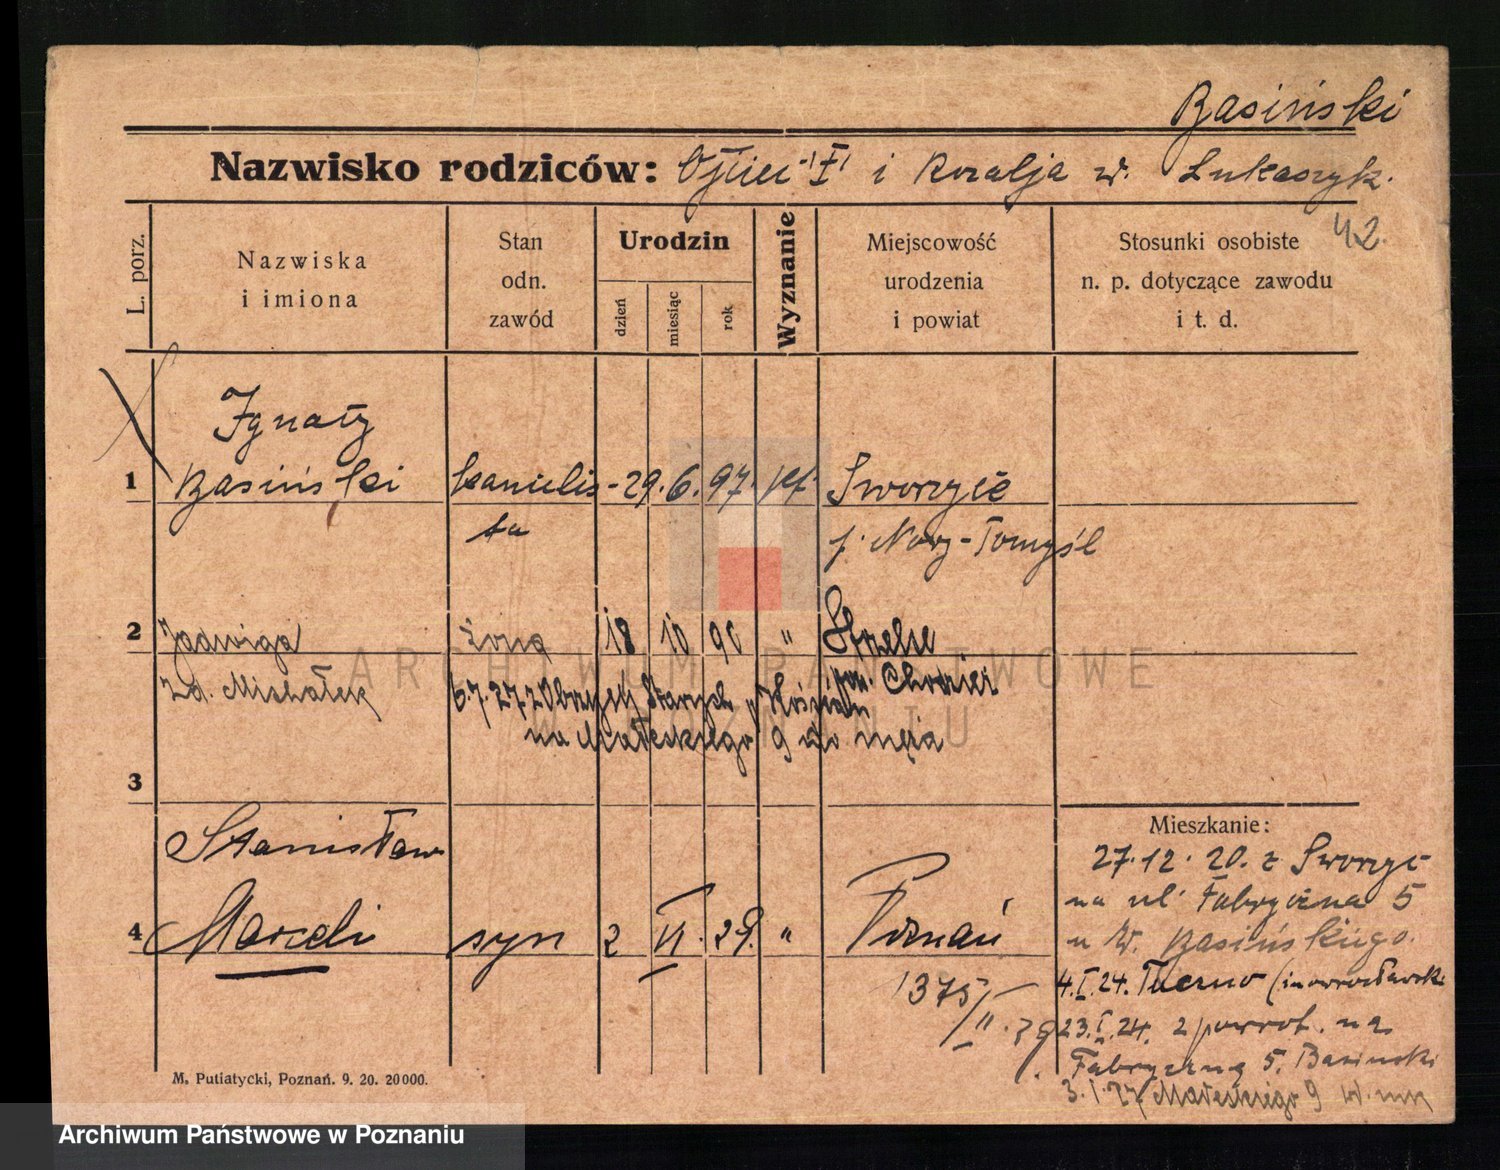 Basiński
Nazwisko rodziców: Ojciec i Rozalja w. Łukaszyk.
42.
L. porz.
Nazwiska
i imiona
Stan
odn.
zawód
Urodzin
dzień
miesiąc
rok
Wyznanie
Miejscowość
urodzenia
i powiat
Stosunki osobiste
n. p. dotyczące zawodu
i t. d.
Ignaty
1 Basiński kancelis- 29. 6. 97. kt. Sworzyce
ta p. Nowy-Tomyśl
2 Jadwiga żona 18 10 90 " Strzelce
zd. Michałek 6.7.27 z Obrzysk Starych p. Kościan pow. Chodzież
na Małeckiego 9 do męża
3
Stanisław
4 Marceli syn 2 VI. 29. " Poznań
1375/II. 29
Mieszkanie:
27.12.20. z Sworzyc
na ul. Fabryczna 5
u W. Basińskiego.
4.I.24. (inowrocławski
23.I.24. z powrot. na
Fabryczną 5. Basinski
3.1.27 Małeckiego 9
M. Putiatycki, Poznań. 9. 20. 20000.
ARCHIWUM PAŃSTWOWE
W POZNANIU
Archiwum Państwowe w Poznaniu